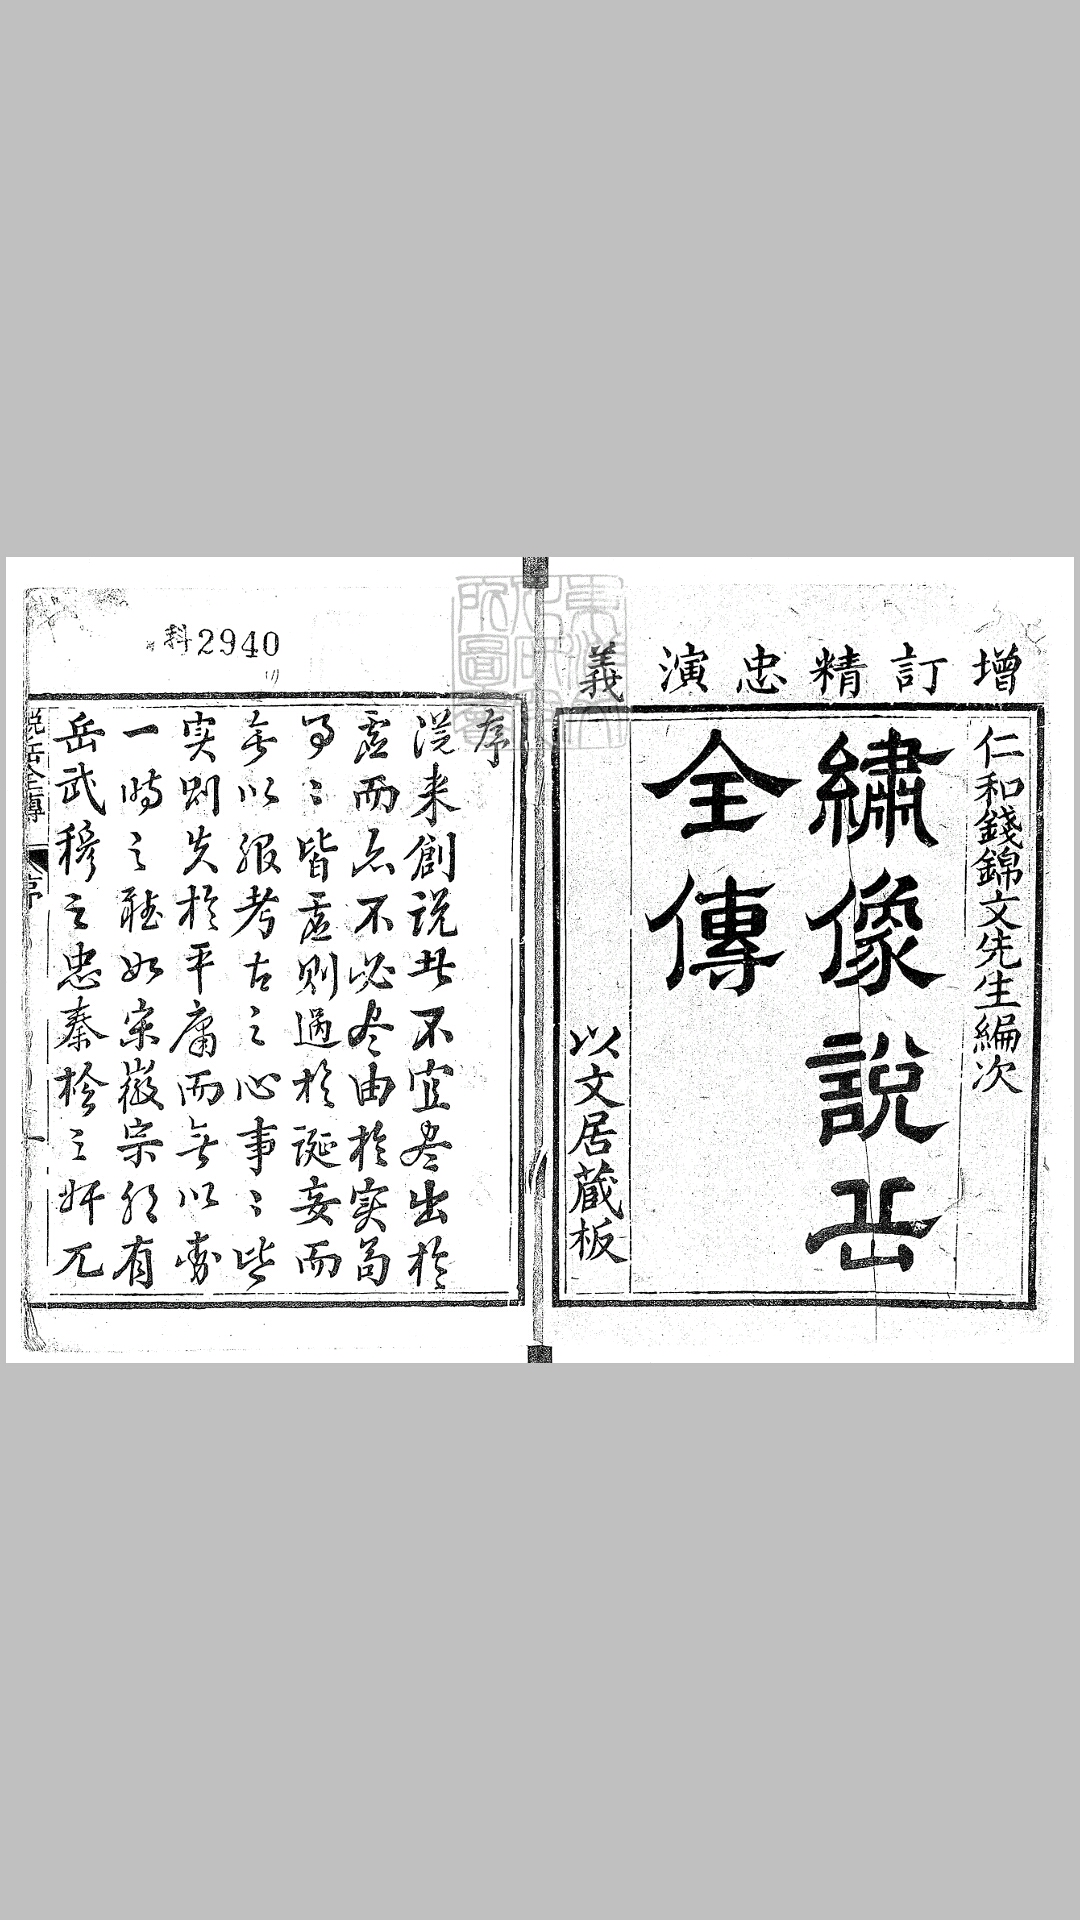 增訂精忠演義
仁和錢錦文先生編次
繡像說岳
全傳
以文居藏板
科2940
序
從来創說者不宜尽出於
虛而亦不必尽由於实苟
事〻皆虛則過於誕妄而
無以服考古之心事〻皆
实則失於平庸而無以動
一時之聽如宋徽宗朝有
岳武穆之忠秦檜之奸兀
説岳全傳
序
一